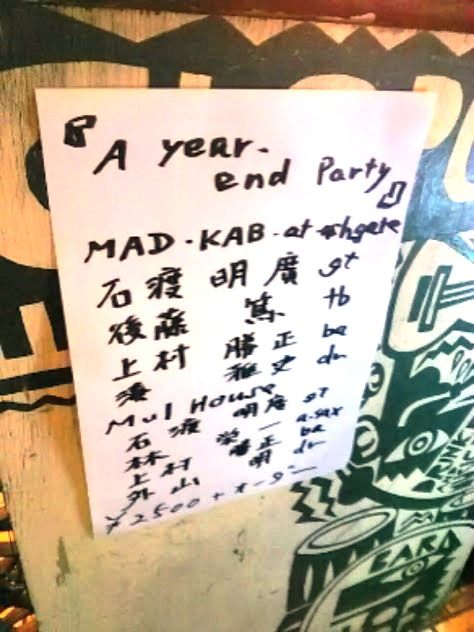 『A year-
end Party』
MAD・KAB・at・ashgate
石渡 明廣 gt
後藤 篤 tb
上村 勝正 ba
湊 雅史 dr
Mul House
石渡 明廣 gt
林 栄一 a.sax
上村 勝正 ba
外山 明 dr
¥2500+オーダー
BAR